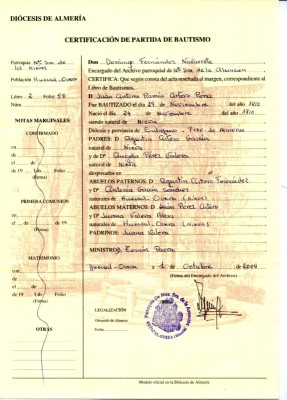 DIÓCESIS DE ALMERÍA
CERTIFICACIÓN DE PARTIDA DE BAUTISMO
Parroquia Nª Sra de
las Nieves
Población Huercal-Overa
Libro 2 Folio 58
NOTAS MARGINALES
CONFIRMADO
en
el de
de 19 Lib.
Folio (Firma)
PRIMERA COMUNION
en
el de de 19
(Firma)
MATRIMONIO
con
en
el de
de 19 Lib. Folio
(Firma)
OTRAS
Don Domingo Fernández Navarrete
Encargado del Archivo parroquial de Nª Sra de la Asunción
CERTIFICA: Que según consta del acta reseñada al margen, correspondiente al
Libro de Bautismos,
D. Juan Antonio Ramón Artero Pérez
Fue BAUTIZADO el día 29 de Noviembre del año 1810
Nació el día 29 de Noviembre del año 1810
siendo natural de Nieva
Diócesis y provincia de Almería
PADRES: D. Agustín Artero García
natural de Nieva
y de Dª Pérez Valera
natural de Nieva
desposados en
ABUELOS PATERNOS: D. Agustín Artero Fernández
y Dª Antonia García Sánchez
naturales de Huercal-Overa (Nieva)
ABUELOS MATERNOS: D. Pérez Artero
y Dª Juana Valera
naturales de Huercal-Overa (Nieva)
PADRINOS: Juana Valera
MINISTRO D. Parra
Huercal-Overa a 1 de Octubre de 2004
(Firma del Encargado del Archivo)
LEGALIZACIÓN
Obispado de Almería
Modelo oficial en la Diócesis de Almería